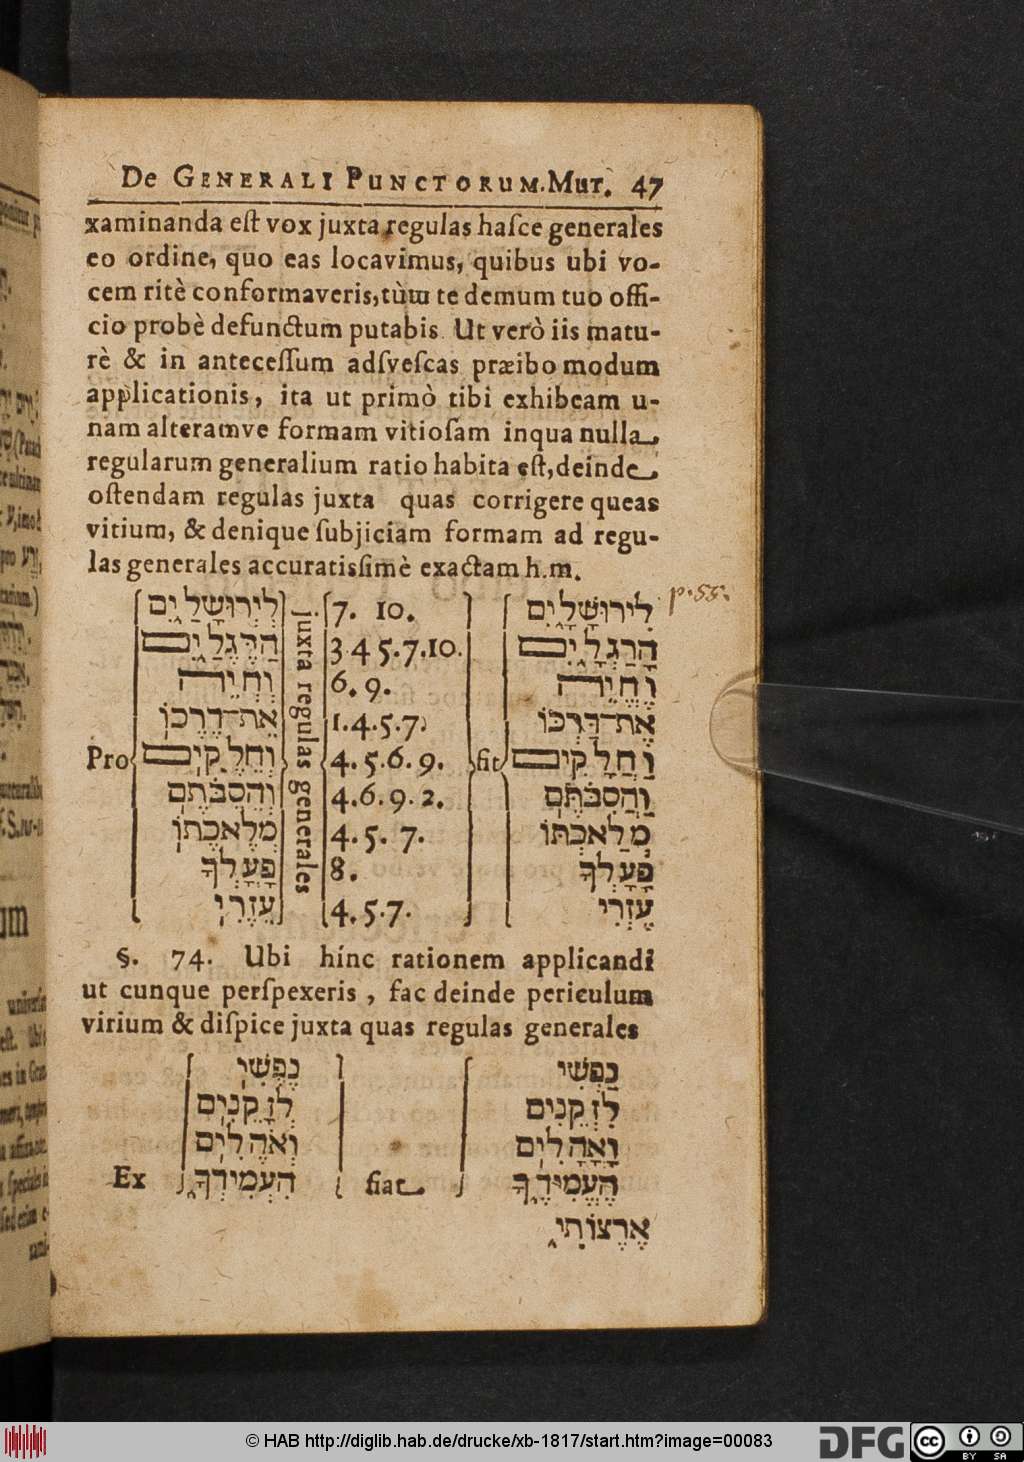 De GENERALI PUNCTORUM. Mut. 47
xaminanda eſt vox juxta regulas haſce generales
eo ordine, quo eas locavimus, quibus ubi vo-
cem ritè conformaveris, tùm te demum tuo offi-
cio probè defunctum putabis. Ut verò iis matu-
rè & in anteceſſum adſveſcas præibo modum
applicationis, ita ut primò tibi exhibeam u-
nam alteramve formam vitioſam in qua nulla
regularum generalium ratio habita eſt, deinde
oſtendam regulas juxta quas corrigere queas
vitium, & denique ſubjiciam formam ad regu-
las generales accuratisſimè exactam h. m.
p. 55.
Pro juxta regulas generales fit
לְיְרוּשָׁלַ͏ִים 7. 10. לִירוּשָׁלָ͏ִים
הַרֶגֶלַיִם 3 4 5. 7. 10. הָרַגְלָיִם
וְחְיֵה 6. 9. וֶחֱיֵה
אֶת־דֶרֶכוֹ 1. 4. 5. 7. אֶת־דַּרְכּוֹ
וְחֵלֶקִים 4. 5. 6. 9. וַחֲלָקִים
וְהֵסִבֹּתֶם 4. 6. 9. 2. וַהֲסִבֹּתֶם
מְלֶאכֶתוֹ 4. 5. 7. מְלַאכְתּוֹ
פָּעֳלְךָ 8. פָּעָלְךָ
עֵזֶרִי 4. 5. 7. עֶזְרִי
§. 74. Ubi hinc rationem applicandi
ut cunque perſpexeris, fac deinde periculum
virium & diſpice juxta quas regulas generales
נֶפֶשִׁי נַפְשִׁי
לְזָקֵנִים לִזְקֵנִים
וְאֹהֶלִים וָאָהָלִים
Ex הִעְמִידְךָ fiat הֶעֱמִידֶךָ
אֶרְצוֹתַי
© HAB http://diglib.hab.de/drucke/xb-1817/start.htm?image=00083
DFG
cc BY SA